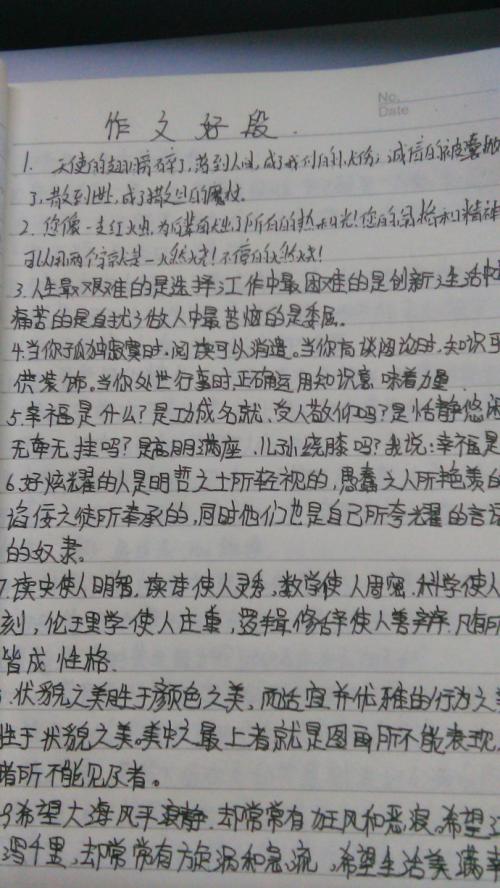 No.
Date
作文好段.
1. 天使的翅膀碎了,落到人间,成了我们的忧伤;诚信的被囊抛
了,散到世,成了撒旦的魔杖。
2. 您像一支红火烛,为后辈献出了所有的热和光!您的品格和精神
可以用两个字就是—燃烧!不停的燃烧!
3.人生最艰难的是选择;工作中最困难的是创新;生活中
痛苦的是自扰;做人中最苦恼的是委屈。
4.当你孤独寂寞时,阅读可以消遣。当你高谈阔论时,知识可
供装饰。当你处世行事时,正确运用知识意味着力量.
5.幸福是什么?是功成名就、受人敬仰吗?是恬静悠闲
无牵无挂吗?是高朋满座、儿孙绕膝吗?我说:幸福是
6.好炫耀的人是明哲之士所轻视的,愚蠢之人所艳羡的
谄佞之徒所奉承的,同时他们也是自己所夸耀的言语
的奴隶。
7.读史使人明智,读诗使人灵秀,数学使人周密,科学使人
刻,伦理学使人庄重,逻辑修辞使人善辩.凡有所
皆成性格.
状貌之美胜于颜色之美,而适宜并优雅的行为之美
胜于状貌之美。美中之最上者就是图画所不能表现,
睹所不能见及者。
9.希望大海风平浪静,却常常有狂风和恶浪。希望江
泻千里,却常常有旋涡和急流,希望生活美满幸